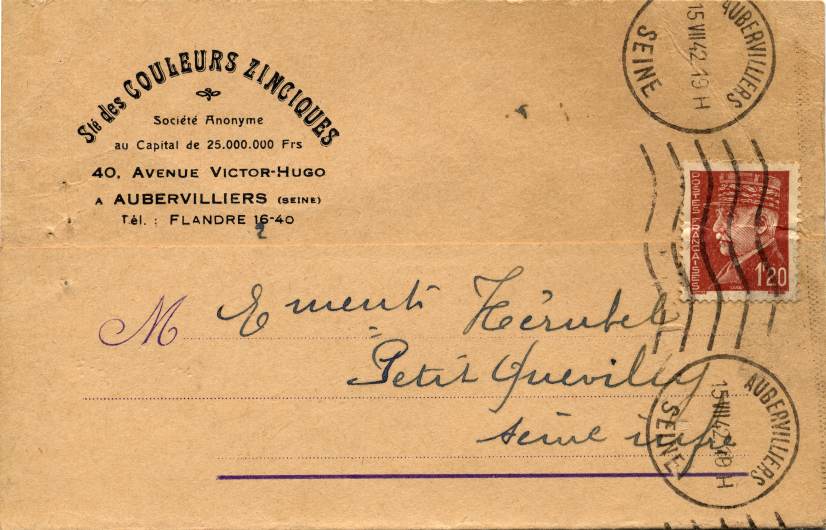 Sté des COULEURS ZINCIQUES
Société Anonyme
au Capital de 25.000.000 Frs
40, AVENUE VICTOR-HUGO
A AUBERVILLIERS (SEINE)
Tél. : FLANDRE 16-40
AUBERVILLIERS
15 VII 42 19 H
SEINE
POSTES FRANÇAISES
1F20
M Ements Hérubel
à
Petit Quevilly
Seine infre
AUBERVILLIERS
15 VII 42 19 H
SEINE